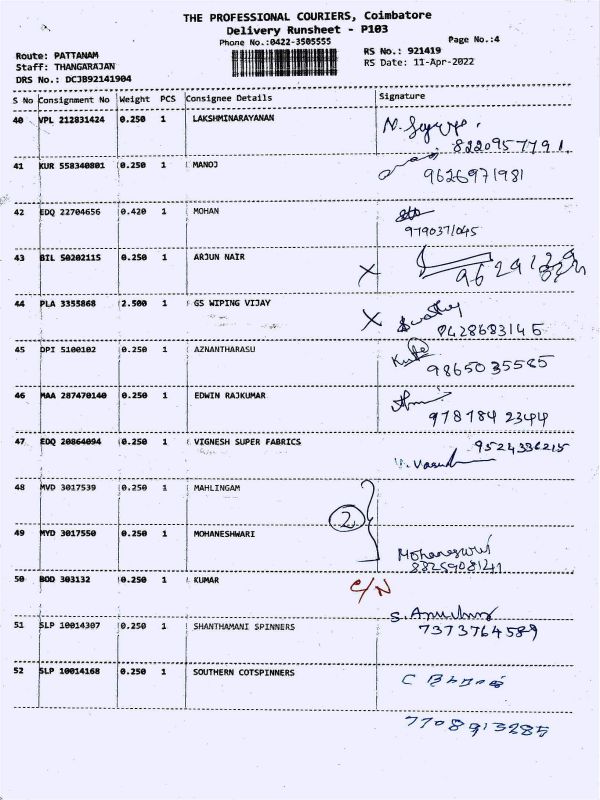 THE PROFESSIONAL COURIERS, Coimbatore
Delivery Runsheet - P103
Phone No.:0422-3505555
Page No.:4
Route: PATTANAM
RS No.: 921419
Staff: THANGARAJAN
RS Date: 11-Apr-2022
DRS No.: DCJB92141904
S No Consignment No Weight PCS Consignee Details Signature
40 VPL 212831424 0.250 1 LAKSHMINARAYANAN
8220957791.
41 KUR 558340801 0.250 1 MANOJ
9626971981
42 EDQ 22704656 0.420 1 MOHAN
9790371045
43 BIL 50202115 0.250 1 ARJUN NAIR
X
44 PLA 3355868 2.500 1 GS WIPING VIJAY
X
8428683145
45 DPI 5100102 0.250 1 AZNANTHARASU
9865035585
46 MAA 287470140 0.250 1 EDWIN RAJKUMAR
9787842344
47 EDQ 20864094 0.250 1 VIGNESH SUPER FABRICS 9524336215
48 MVD 3017539 0.250 1 MAHLINGAM
2
49 MYD 3017550 0.250 1 MOHANESHWARI
Mohaneswari
8825908141
50 BOD 303132 0.250 1 KUMAR C/N
51 SLP 10014307 0.250 1 SHANTHAMANI SPINNERS
7373764589
52 SLP 10014168 0.250 1 SOUTHERN COTSPINNERS
7708913285